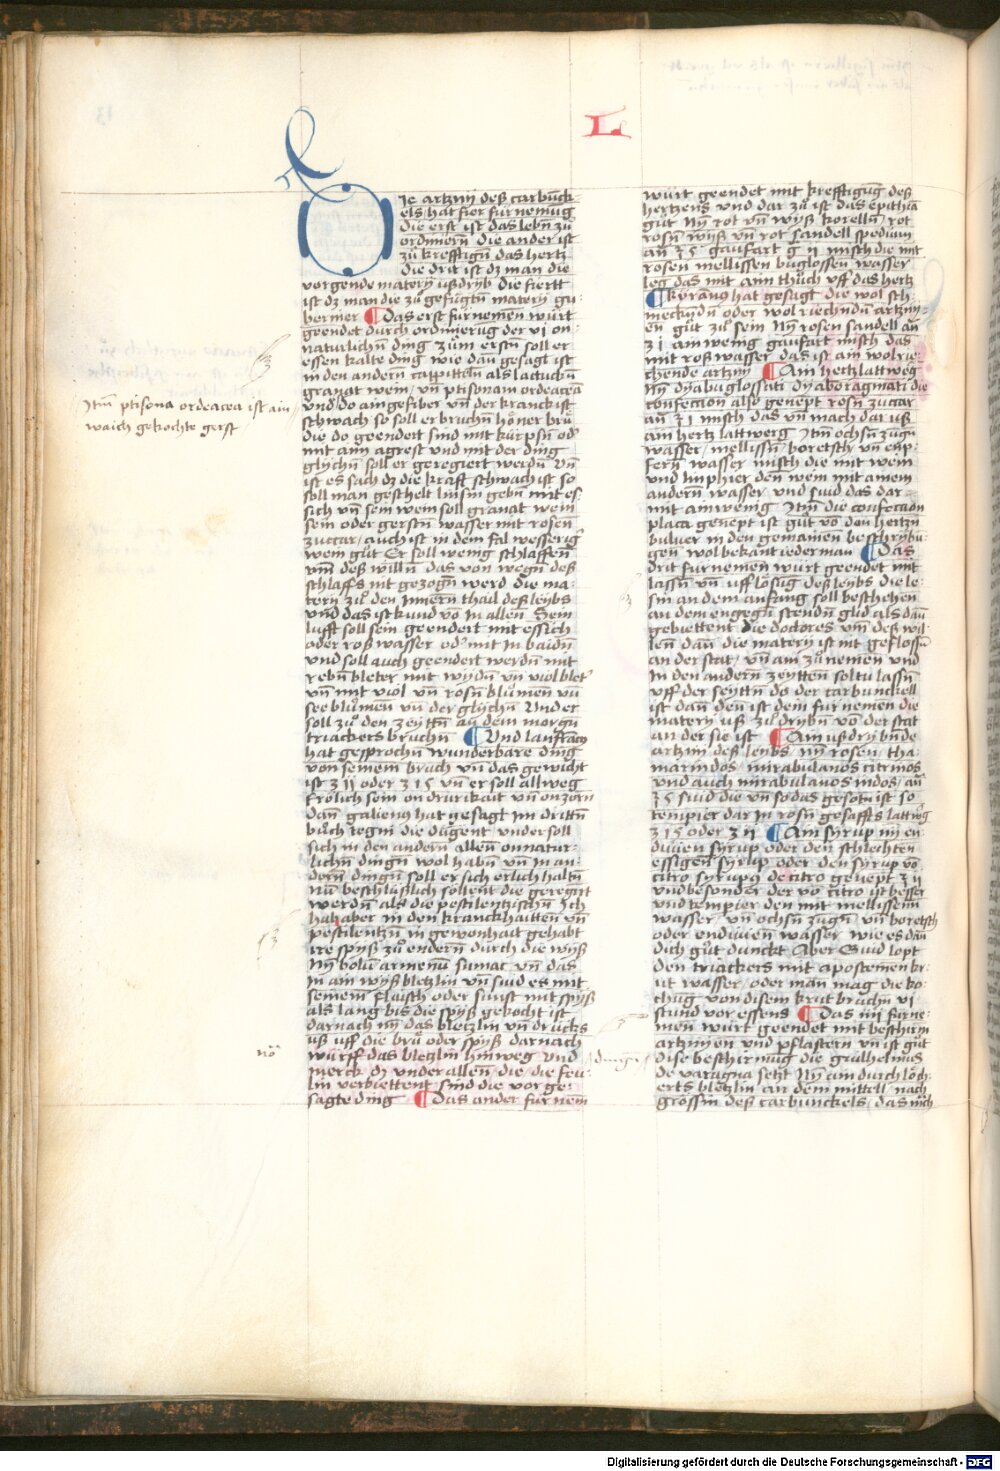 L
Die artznÿ deß carbunck-
els hat fier fürnemūg
die erst ist das lebñ zů
ordinierñ die ander ist
zů krefftigñ das hertz
Die drit ist dz man die
vorgende materÿ ußdrÿb die fiertt
ist dz man die zů gefügtñ materÿ
Das erst fürnemen würt
geendet durch ordinierūg der vi on-
natürlichñ ding zům erstñ soll er
essen kalte ding wie dañ gesagt ist
in den andern cappittñ als lactuckñ
granat wein / vñ ptisonam ordeacea
vnd do ain gefiber vñ der kranck ist
schwach so soll er bruchñ hŏner brů
die do geendert sind mit kürpsñ odʼ
mit aim agrest vnd mit der ding
glÿchñ soll er geregiert werdñ vñ
ist es sach dz die kraft schwach ist so
soll man geschelt linsin gebñ mit es-
sich vñ sein wein soll granat wein
sein oder gerstñ wasser mit rosen
zuccar / auch ist in dem fal wesserig
wein gůt Er soll wenig schlaffen
vm̄ deß willñ das von wegñ deß
schlaffs nit gezogñ werd die ma-
terÿ zů den innern thail deß leÿbs
vnd das ist kund vō in allen Sein
lufft soll sein geendert mit essich
oder roß wasser odʼ mit in baidñ
vnd soll auch geendert werdñ mit
rebñ bleter mit wÿdñ vñ viol bletʼ
vñ mit viol vñ rosñ blůmen vñ
see blůmen vñ der glÿchñ Vnd er
soll zů den zeÿttñ an dem morgñ
triackers bruchñ Vnd lanfranck
hat gesprochñ wunderbare ding
von seinem bruch vñ das gewicht
ist ʒ ii oder ʒ i s vñ er soll allweg
frŏlich sein on drurikait vñ on zorn
dañ galienꝰ hat gesagt im drittñ
bůch tegni die dugent vnder soll
sich in den andern allen onnatur-
lichñ dingñ wol habñ vñ in an-
dern dingñ soll er sich erlich haltñ
Nū beschlußlich sollent die geregirt
werdñ als die pestilentzischñ Ich
hab aber in den kranckhaitten vñ
pestilentzñ in gewonhait gehabt
ire spÿß zů endern durch die wÿß
Nÿ bolū armenū sumac vñ das
in ain wÿß bletzlin vñ süd es mit
seinem flaisch oder sunst mit spÿß
als lang bis die spÿß gekocht ist
darnach nÿ das bletzlin vñ drucks
uß uff die brů oder spÿß darnach
würff das bletzlin hinweg vnd
merck dz vnder allen die / die feu-
lin verbiettent sind die vorge-
sagte ding Das ander fürnem
würt geendet mit krefftigūg deß
hertzens vnd dar zů ist das epithīa
gůt Nÿ rot vñ wÿß korellñ rot
rosñ wÿß vñ rot sandell
misch die mit
rosen mellissen buglossen wasser
leg das mit aim thůch uff das hertz
hat gesagt die wol sch-
meckīdñ oder wol riechndñ artznÿ-
en gůt zů sein Nÿ rosen sandell añ
ʒ i ain wenig gaufart misch das
mit roß wasser das ist ain wolrie-
chende artznÿ Ain hertz lattweg
Nÿ dÿabuglossati dÿaboragmati die
confeccion also geneꝑt rosñ zuccar
añ ʒ i misch das vñ mach dar uß
ain hertz lattwerg Itm̄ ochsñ zugñ
wasser / mellissñ / boretsch vñ
wasser misch die mit wein
vnd linphier den wein mit ainem
andern wasser vnd süd das dar-
mit ain wenig Itm̄ die confeccion
placa geneꝑt ist gůt vō den hertzñ
bulver in den gemainen beschrÿbū-
gen wol bekant iederman Das
drit fürnemen würt geendet mit
lassñ vñ ufflŏsūg deß leÿbs die le-
sin an dem anfang soll beschehen
an dem engegñ stendñ glid als dañ
gebiettent die doctores vm̄ deß wil-
len dañ die materÿ ist nit geflossñ
an der stat / vñ am zů nemen vnd
in den andern zeÿtten soltu lassñ
uff der seÿttñ do der carbunckell
ist dañ den ist dem fürnemen die
materÿ uß zů drÿbñ vō der stat
an der sie ist Ain ußdrÿbñde
artznÿ deß leÿbs Nÿ rosen / tha-
marindos / mirabulanos citrinos
vnd auch mirabulanos indos / añ
süd die vñ so das gesotñ ist so
tempier dar in rosñ gesaffts lattwg
ʒ i s oder ʒ ii Ain sÿrup nÿ en-
diuien sÿrup oder den schlechten
essigen sÿrup oder den sÿrup vō
citro sÿrupꝰ de citro geneꝑt ʒ ii
vnd besonder der vō citro ist besser
vnd tempier den mit mellissein
wasser / vñ ochsñ zugñ vñ boretsch
oder endiuien wasser wie es dañ
dich gůt dunckt Aber Guid lopt
den triackers mit apostemen kr-
ut wasser / oder man mag die ko-
chūg von disem krut bruchñ vi
stund vor essens Das iiii fürne-
men würt geendet mit beschirm
artznÿen vnd pflastern vñ ist gůt
dise beschirmūg die guilhelmus
de varagna setzt Nÿ ain durch lŏch-
erts bletzlin an dem mittell nach
grŏssin deß carbunckels / das
Itm̄ ptisona ordeacea ist ain
waich gekochte gerst
Digitalisierung gefördert durch die Deutsche Forschungsgemeinschaft - DFG